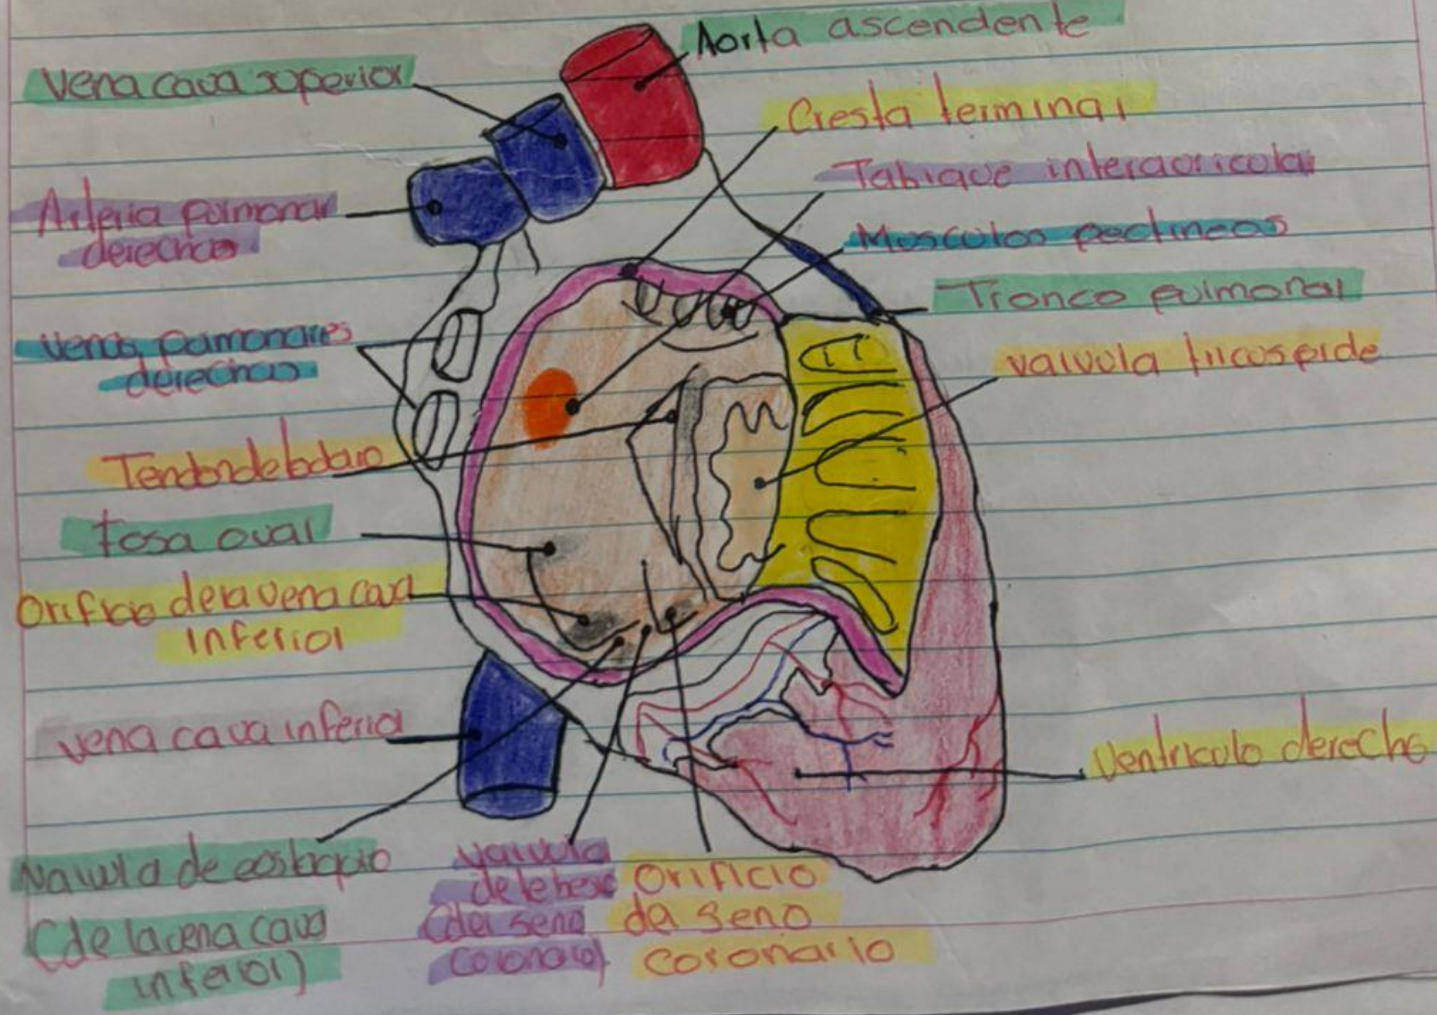 Aorta ascendente
Vena cava superior
Cresta terminal
Tabique interauricular
Arteria pulmonar
derecha
Musculos pectineos
Tronco pulmonal
Venas pamonares
derechas
valvula tricuspide
Tendon de todaro
Fosa oval
Orificio de la vena cava
Inferior
vena cava inferior
Ventriculo derecho
Valvula de eostaquio
(de la vena cava
inferior)
valvula
de tebesc
(del seno
coronario)
Orificio
de seno
coronario